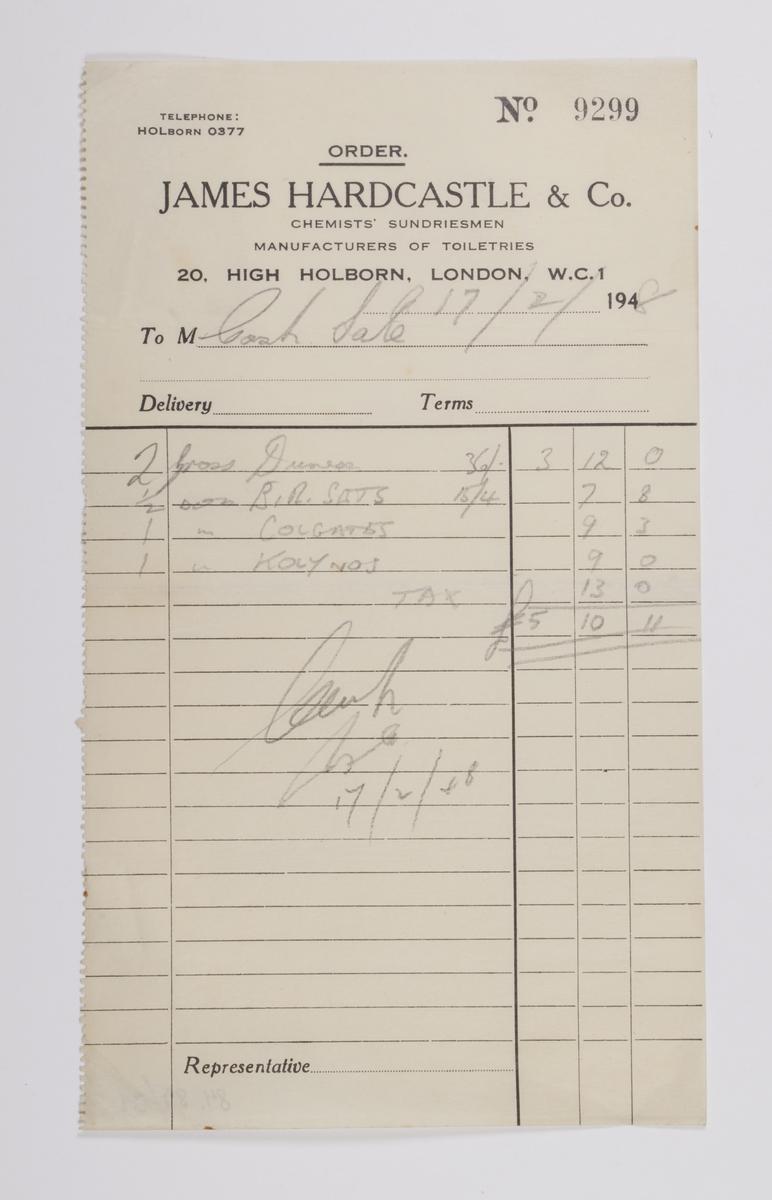 TELEPHONE:
HOLBORN 0377
Nº 9299
ORDER.
JAMES HARDCASTLE & Co.
CHEMISTS' SUNDRIESMEN
MANUFACTURERS OF TOILETRIES
20, HIGH HOLBORN, LONDON, W.C.1
17/2/ 1948
To M Cash Sale
Delivery Terms
2 gross 36/- 3 12 0
1/2 B.R. SETS 15/4 7 8
1 " COLGATES 9 3
1 " KOLYNOS 9 0
TAX 13 0
£5 10 11
17/2/48
Representative